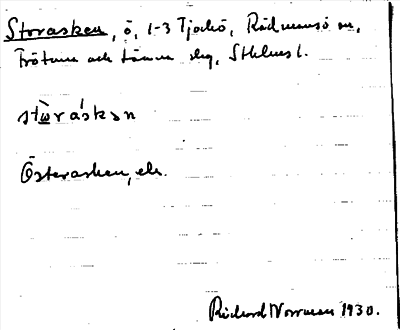 Storasken, ö, 1-3 Tjockö, Rådmansö sn,
Frötuna och Länna skg, Sthlms l.
stɯ̀rás̀kən
Österasken, ek.
Richard Norrman 1930.